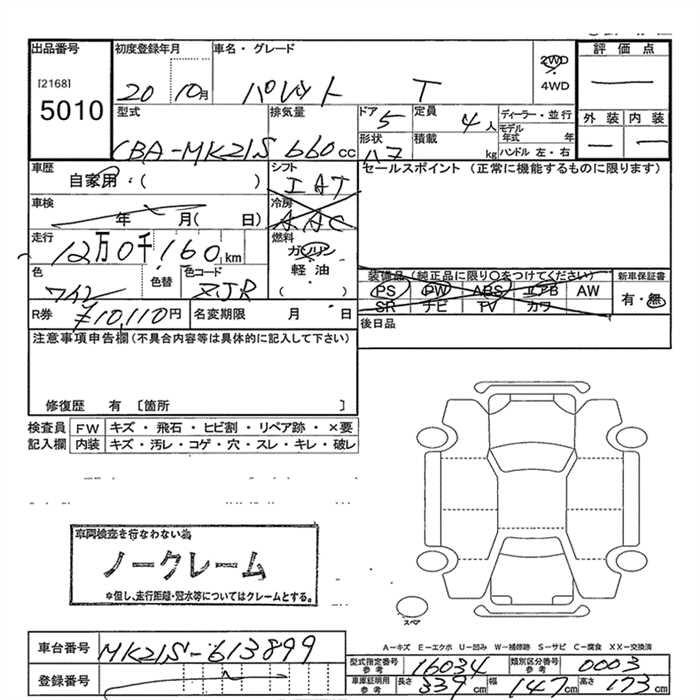 出品番号 初度登録年月 車名・グレード 2WD 評価点
[2168] 5010 20 10月 パレット T 4WD
型式 排気量 ドア 定員 ディーラー・並行 外装 内装
CBA-MK21S 660cc 5 4人 モデル年式 年
形状 積載 kg ハンドル 左・右
ハフ
車歴 シフト セールスポイント (正常に機能するものに限ります)
自家用・( ) IAT
車検 冷房
年 月( 日) AAC
走行 燃料
12万0千160km ガソリン
色 色替 色コード 軽油 装備品(純正品に限り○をつけてください) 新車保証書
ワイン ZJR ( ) PS PW ABS エアB AW 有・無
SR ナビ TV カワ
R券 ¥10,110円 名変期限 月 日 後日品
注意事項申告欄(不具合内容等は具体的に記入して下さい)
修復歴 有 [箇所 ]
検査員 FW キズ・飛石・ヒビ割・リペア跡・×要
記入欄 内装 キズ・汚レ・コゲ・穴・スレ・キレ・破レ
車両検査を行なわない為
ノークレーム
*但し、走行距離・冠水等についてはクレームとする。
スペア
A−キズ E−エクボ U−凹み W−補修跡 S−サビ C−腐食 XX−交換済
車台番号 MK21S-613899
型式指定番号 参考 16034 類別区分番号 参考 0003
登録番号
車庫証明用 参考 長さ 339cm 幅 147cm 高さ 173cm